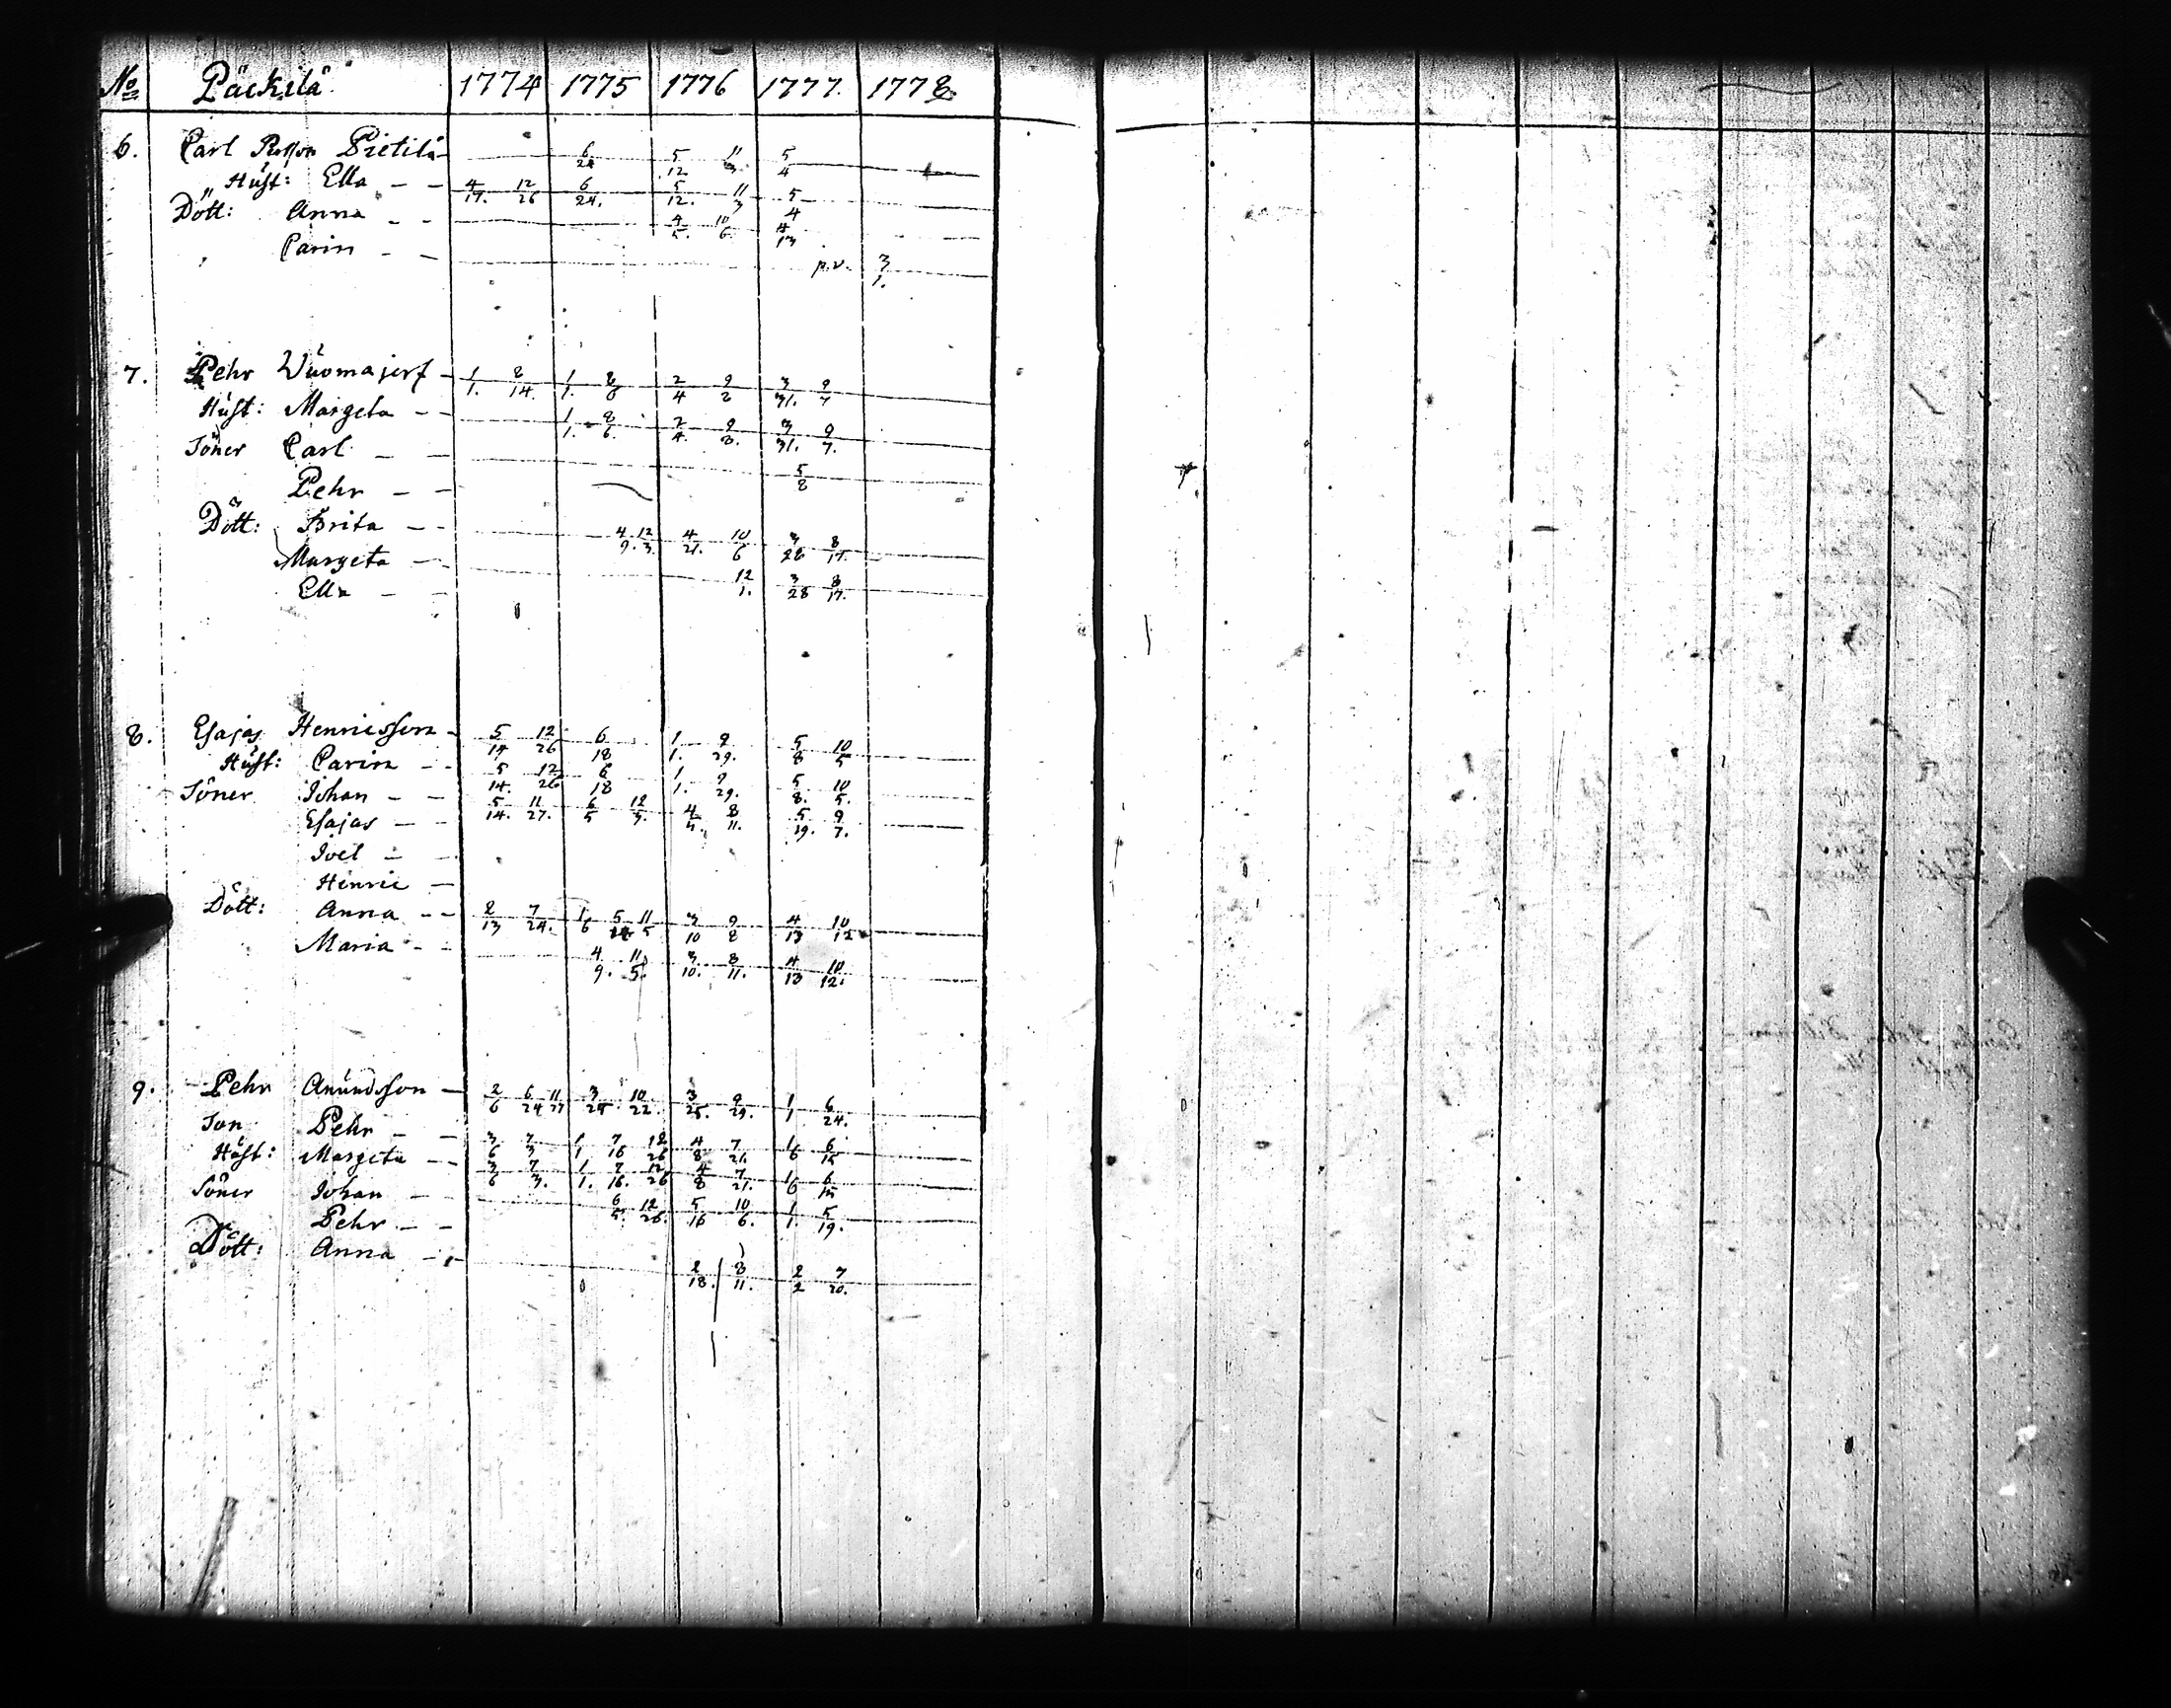 No Päckilä 1774 1775 1776 1777. 1778
6. Carl Pietilä 6/24 5/12 11/3 5/4
Hust: Ella 4/17. 12/26 6/24. 5/12. 11/3 5/4
Dött: Anna 4/5. 10/6 4/13
Carin p.v. 3/1.
7. Pehr Wuomajerf 1/1. 8/14. 1/1. 8/6 2/4 9/2 3/31. 9/7
Hust: Margeta 1/1. 8/6. 2/4. 9/2. 3/31. 9/7.
Söner Carl 5/8
Pehr
Dött: Brita 4/9. 12/3. 4/21. 10/6 3/28 8/17.
Margeta 12/1. 3/28 8/17.
Ella
8. Esajas Henricsson 5/14 12/26 6/18 1/1. 9/29. 5/8 10/5
Hust: Carin 5/14. 12/26 6/18 1/1. 9/29. 5/8. 10/5.
Söner Johan 5/14. 11/27. 6/5 12/3. 4/5. 8/11. 5/19. 9/7.
Esajas
Joel
Henric
Dött: Anna 2/13 7/24. 1/6 5/14 11/5 3/10 9/8 4/13 10/12
Maria 4/9. 11/5. 3/10. 8/11. 4/13 10/12.
9. Pehr Anundsson 2/6 6/24 11/27 3/25 10/22. 3/25. 9/29. 1/1 6/24.
Son Pehr 3/6 7/3 1/1 7/16 12/26 4/8 7/21. 1/6 6/15
Hust: Margeta 3/6 7/3. 1/1. 7/16. 12/26 4/8 7/21. 1/6 6/15
Söner Johan 6/5. 12/26. 5/16 10/6. 1/1. 5/19.
Pehr
Dött: Anna 2/18. 8/11. 2/2 7/20.